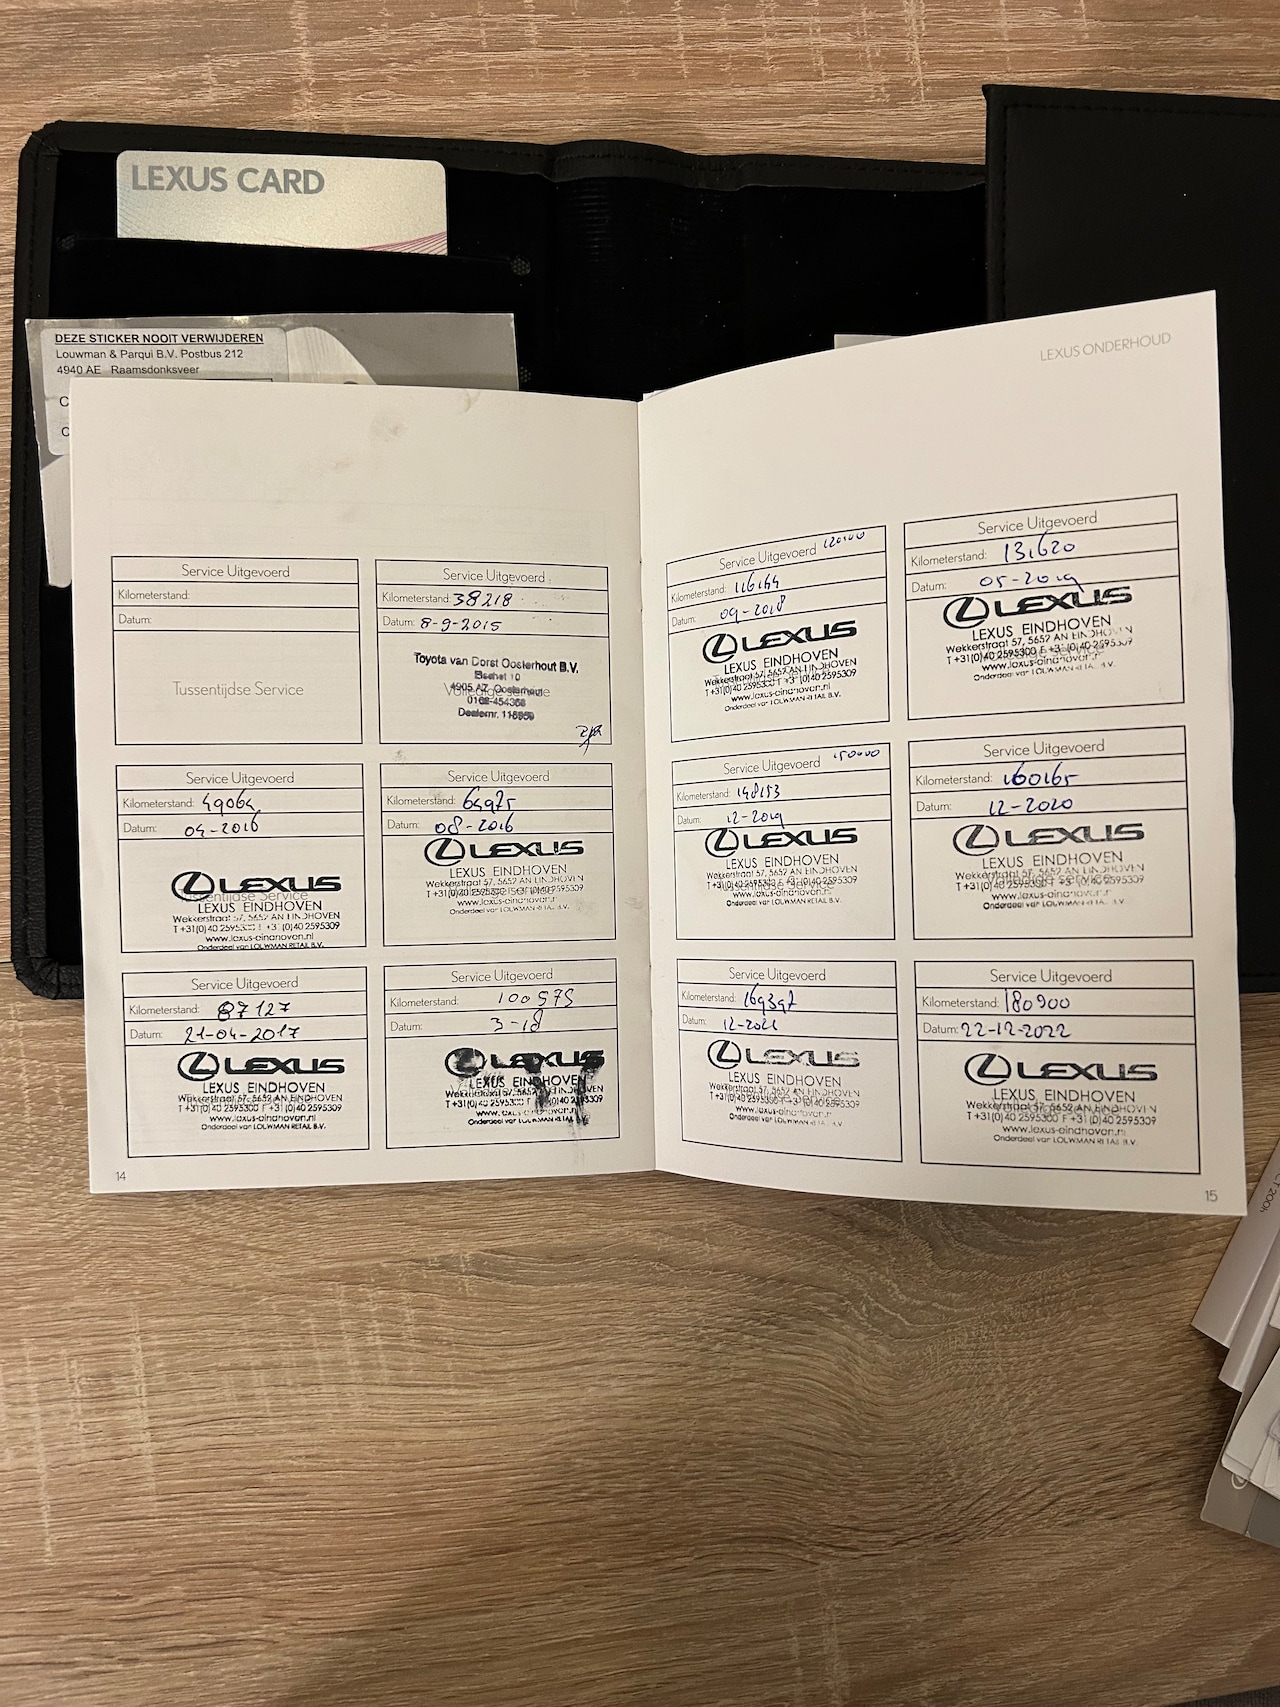 LEXUS CARD
DEZE STICKER NOOIT VERWIJDEREN
Louwman & Parqui B.V. Postbus 212
4940 AE Raamsdonksveer
C
C
Service Uitgevoerd
Kilometerstand:
Datum:
Tussentijdse Service
Service Uitgevoerd
Kilometerstand: 38218
Datum: 8-9-2015
Toyota van Dorst Oosterhout B.V.
4905 AZ Oosterhout
0162-454368
Dealernr.
Service Uitgevoerd
Kilometerstand: 49064
Datum: 04-2016
LEXUS
LEXUS EINDHOVEN
Wekkerstraat 57, 5652 AN EINDHOVEN
T +31(0)40 2595300 F +31(0)40 2595309
www.lexus-eindhoven.nl
Onderdeel van LOUWMAN RETAIL B.V.
Service Uitgevoerd
Kilometerstand: 64975
Datum: 08-2016
LEXUS
LEXUS EINDHOVEN
Wekkerstraat 57, 5652 AN EINDHOVEN
T +31(0)40 2595300 F +31(0)40 2595309
www.lexus-eindhoven.nl
Onderdeel van LOUWMAN RETAIL B.V.
Service Uitgevoerd
Kilometerstand: 87127
Datum: 21-04-2017
LEXUS
LEXUS EINDHOVEN
Wekkerstraat 57, 5652 AN EINDHOVEN
T +31(0)40 2595300 F +31(0)40 2595309
www.lexus-eindhoven.nl
Onderdeel van LOUWMAN RETAIL B.V.
Service Uitgevoerd
Kilometerstand: 100575
Datum: 3-18
LEXUS
LEXUS EINDHOVEN
Wekkerstraat 57, 5652 AN EINDHOVEN
T +31(0)40 2595300 F +31(0)40 2595309
www.lexus-eindhoven.nl
Onderdeel van LOUWMAN RETAIL B.V.
14
LEXUS ONDERHOUD
Service Uitgevoerd 120000
Kilometerstand: 116164
Datum: 09-2018
LEXUS
LEXUS EINDHOVEN
Wekkerstraat 57, 5652 AN EINDHOVEN
T +31(0)40 2595300 F +31(0)40 2595309
www.lexus-eindhoven.nl
Onderdeel van LOUWMAN RETAIL B.V.
Service Uitgevoerd
Kilometerstand: 131620
Datum: 05-2019
LEXUS
LEXUS EINDHOVEN
Wekkerstraat 57, 5652 AN EINDHOVEN
T +31(0)40 2595300 F +31(0)40 2595309
www.lexus-eindhoven.nl
Onderdeel van LOUWMAN RETAIL B.V.
Service Uitgevoerd 150000
Kilometerstand: 148153
Datum: 12-2019
LEXUS
LEXUS EINDHOVEN
Wekkerstraat 57, 5652 AN EINDHOVEN
T +31(0)40 2595300 F +31(0)40 2595309
www.lexus-eindhoven.nl
Onderdeel van LOUWMAN RETAIL B.V.
Service Uitgevoerd
Kilometerstand: 160165
Datum: 12-2020
LEXUS
LEXUS EINDHOVEN
Wekkerstraat 57, 5652 AN EINDHOVEN
T +31(0)40 2595300 F +31(0)40 2595309
www.lexus-eindhoven.nl
Onderdeel van LOUWMAN RETAIL B.V.
Service Uitgevoerd
Kilometerstand: 169397
Datum: 12-2021
LEXUS
LEXUS EINDHOVEN
Wekkerstraat 57, 5652 AN EINDHOVEN
T +31(0)40 2595300 F +31(0)40 2595309
www.lexus-eindhoven.nl
Onderdeel van LOUWMAN RETAIL B.V.
Service Uitgevoerd
Kilometerstand: 180900
Datum: 22-12-2022
LEXUS
LEXUS EINDHOVEN
Wekkerstraat 57, 5652 AN EINDHOVEN
T +31(0)40 2595300 F +31(0)40 2595309
www.lexus-eindhoven.nl
Onderdeel van LOUWMAN RETAIL B.V.
15